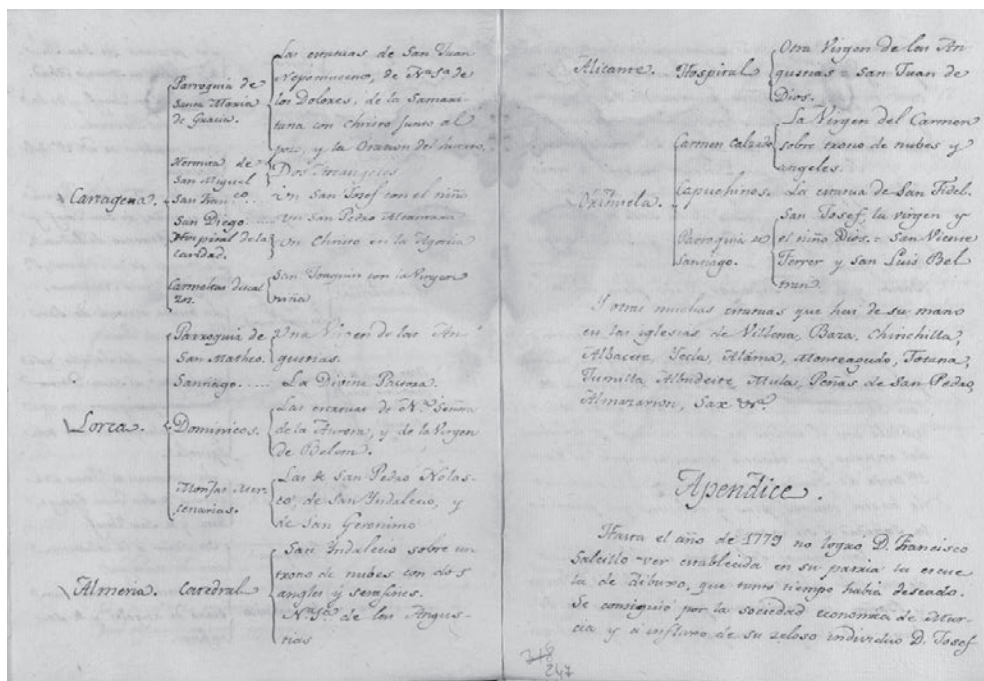 Cartagena.
Parroquia de
Santa Maria
de Gracia.
Las estatuas de San Juan
Nepomuceno, de Nª Sª de
los Dolores, de la Samari-
tana con Christo junto al
pozo, y la Oracion del huerto.
Hermita de
San Miguel
Dos Arcangeles
San Franco.
Un San Josef con el niño
San Diego.....
Un San Pedro Alcantara
Hospital de la
caridad.
Un Christo en la Agonia
Carmelitas descal
zos.
San Joaquin con la Virgen
niña
Lorca.
Parroqui de
San Matheo.
Una Virgen de las An-
gustias.
Santiago.....
La Divina Pastora.
Dominicos.
Las estatuas de Nª Señora
de la Aurora, y de la Virgen
de Belem.
Monjas Mer-
cenarias.
Las de San Pedro Nolas-
co, de San Yndalecio, y
de San Geronimo
Almeria.
Catedral
San Yndalecio sobre un
trono de nubes con dos
angles y serafines.
Nª Sª de las Angus-
tias
Alicante.
Hospital
Otra Virgen de las An
gustias = San Juan de
Dios.
Orihuela.
Carmen Calzado
La Virgen del Carmen
sobre trono de nubes y
angeles.
Capuchinos.
La estatua de San Fidel.
Parroquia de
Santiago.
San Josef, la virgen y
el niño Dios. = San Vicente
Ferrer y San Luis Bel
tran.
Y otras muchas estatuas que hai de su mano
en las iglesias de Villena, Baza, Chinchilla,
Albacete, Yecla, Aláma, Monteagudo, Totana,
Jumilla, Albudeite, Mula, Peñas de San Pedro,
Almazarron, Sax &ª.
Apendice.
Hasta el año de 1779 no logró D. Francisco
Salcillo ver establecida en su patria la escue
la de dibuxo, que tanto tiempo habia deseado.
Se consiguió por la sociedad economica de Mur-
cia y a influxo de su zeloso individuo D. Josef
247